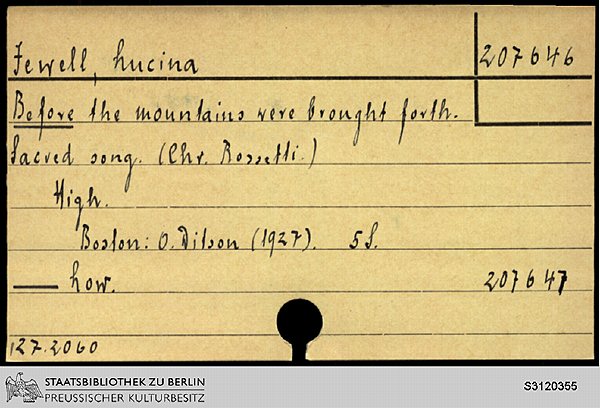 Jewell, Lucina
207646
Before the mountains were brought forth.
Sacred song. (Chr. Rossetti.)
High.
Boston: O. Ditson (1927). 5 S.
— Low.
207647
127.2060
STAATSBIBLIOTHEK ZU BERLIN
PREUSSISCHER KULTURBESITZ
S3120355